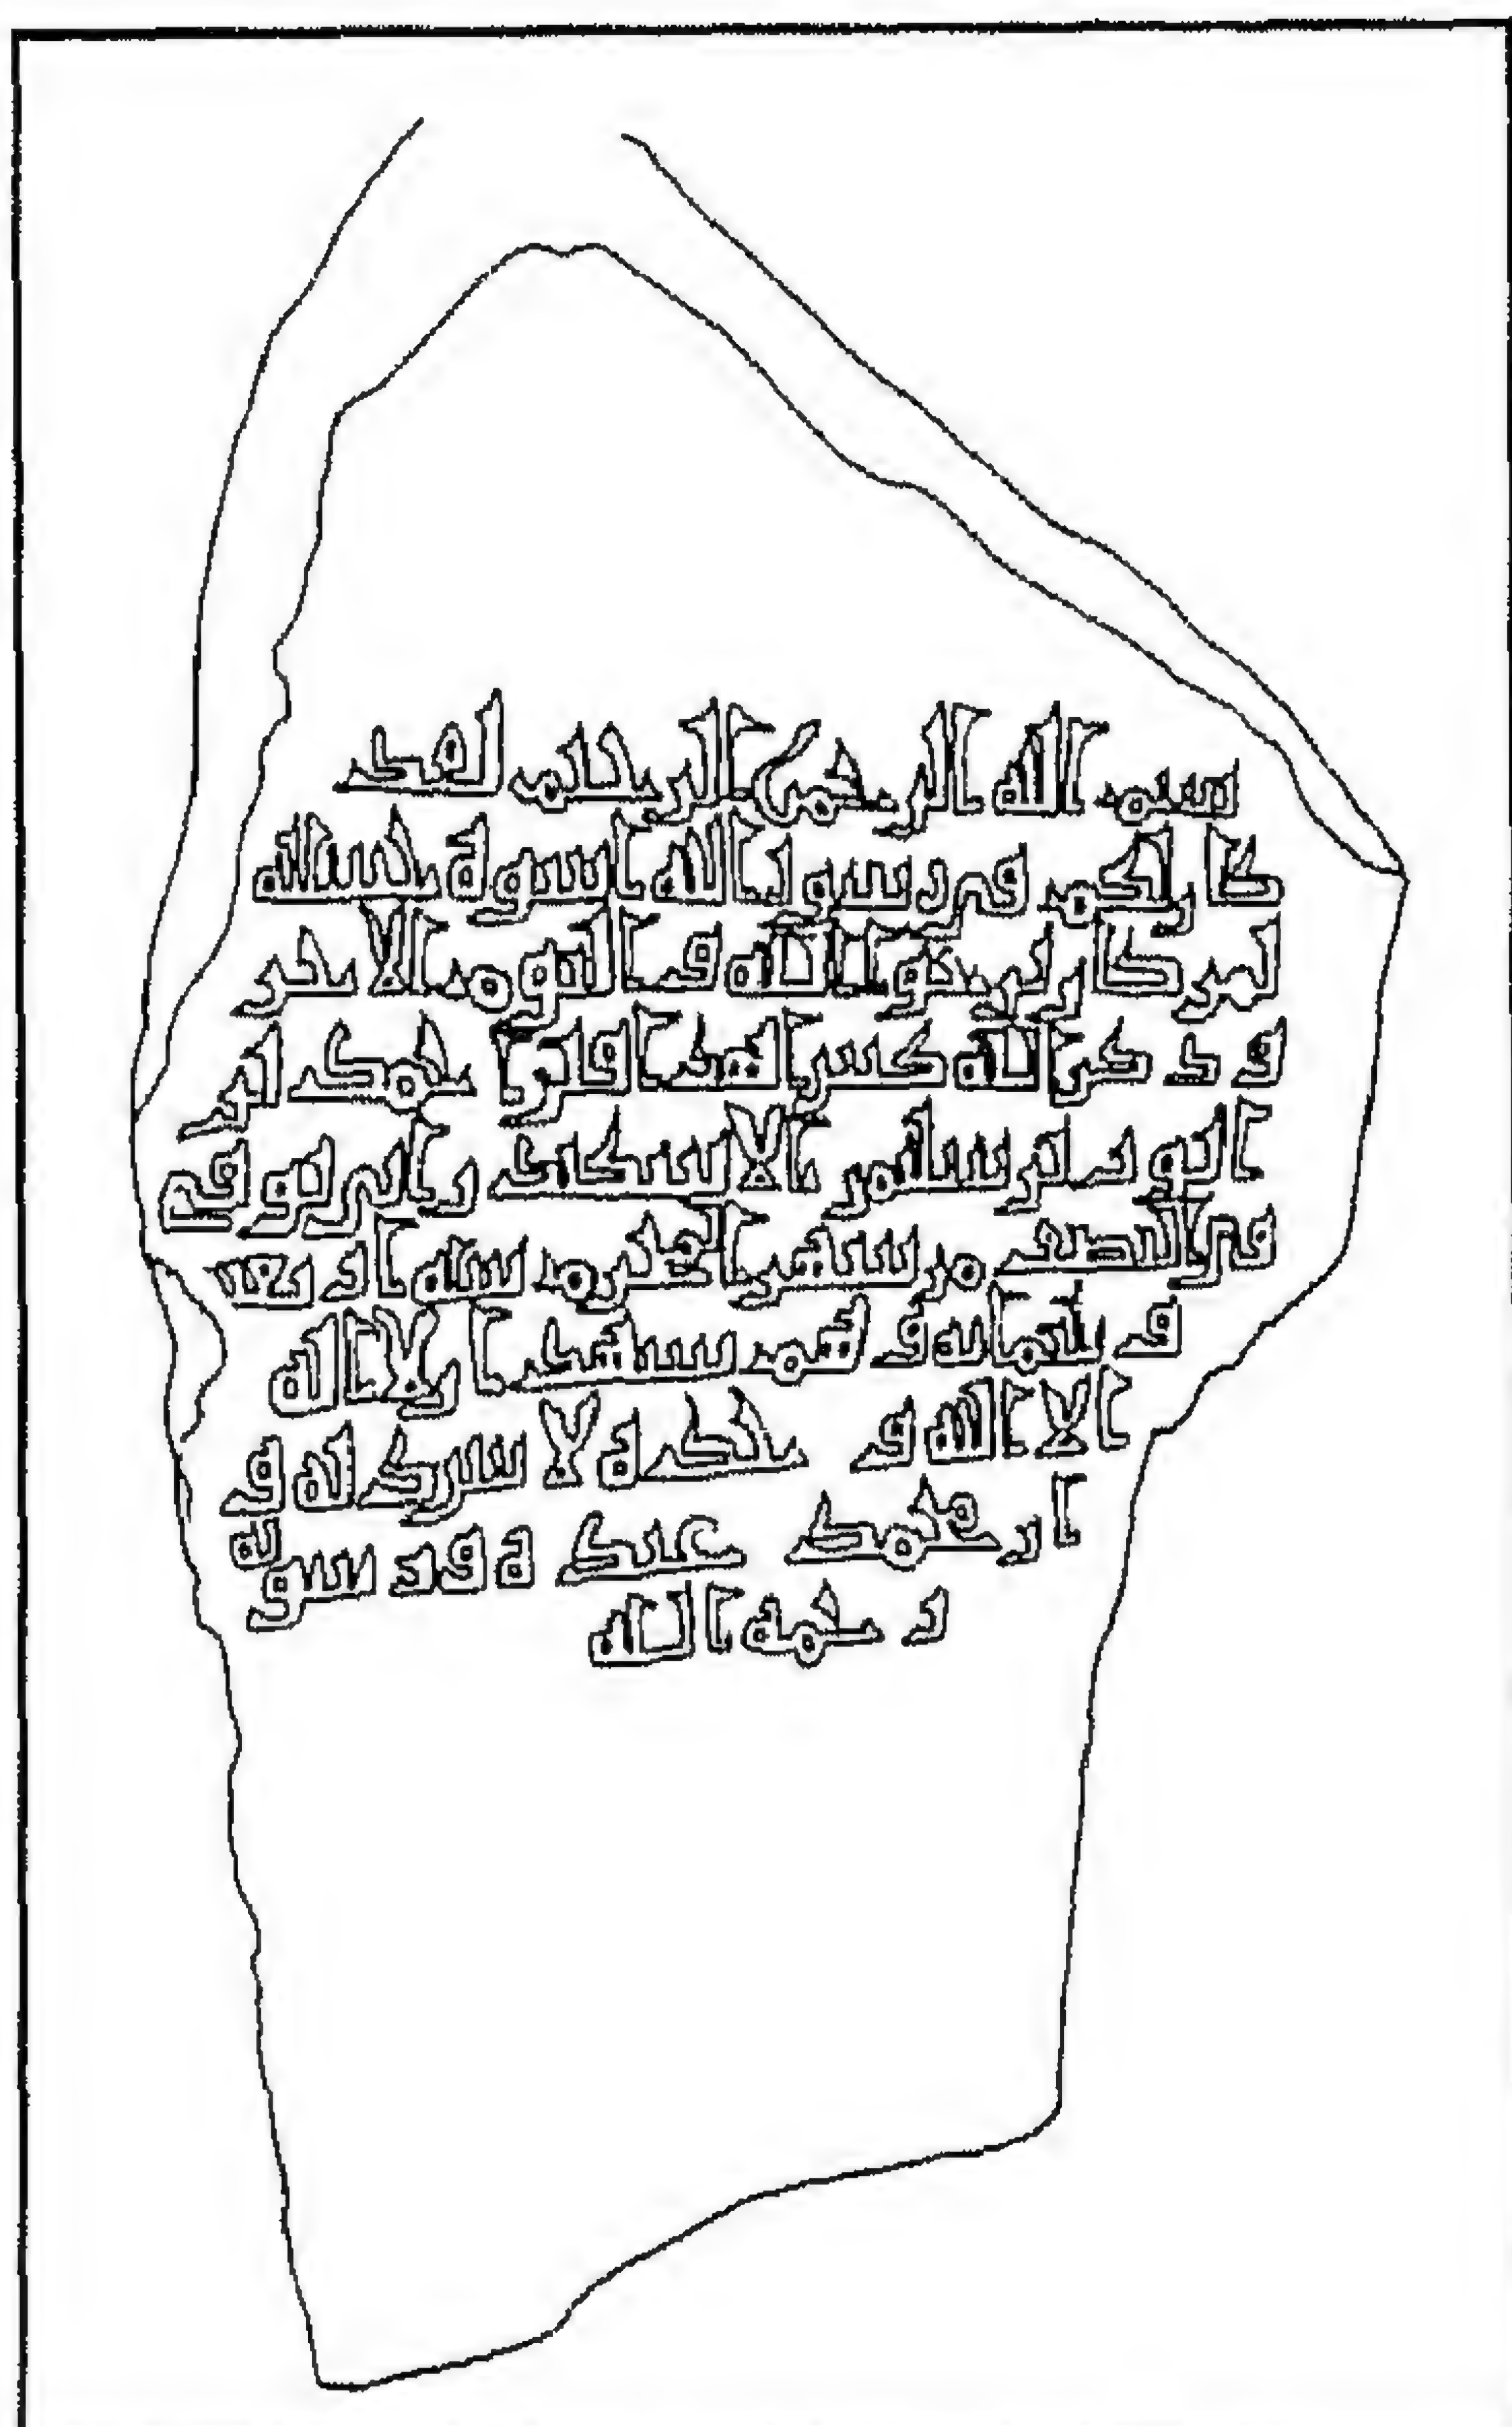 بسم الله الرحمن الرحيم لقد
كان لكم في رسول الله اسوة حسنة
لمن كان يرجو الله واليوم الاخر
وذكر الله كثيرا هذا قبر محمد ابن
ابن سليمن الاسكندراني توفي
في النصف من شهر المحرم سنة
يشهد ان لا اله
الا الله وحده لا شريك له و
ان محمد عبده ورسوله
رحمه الله